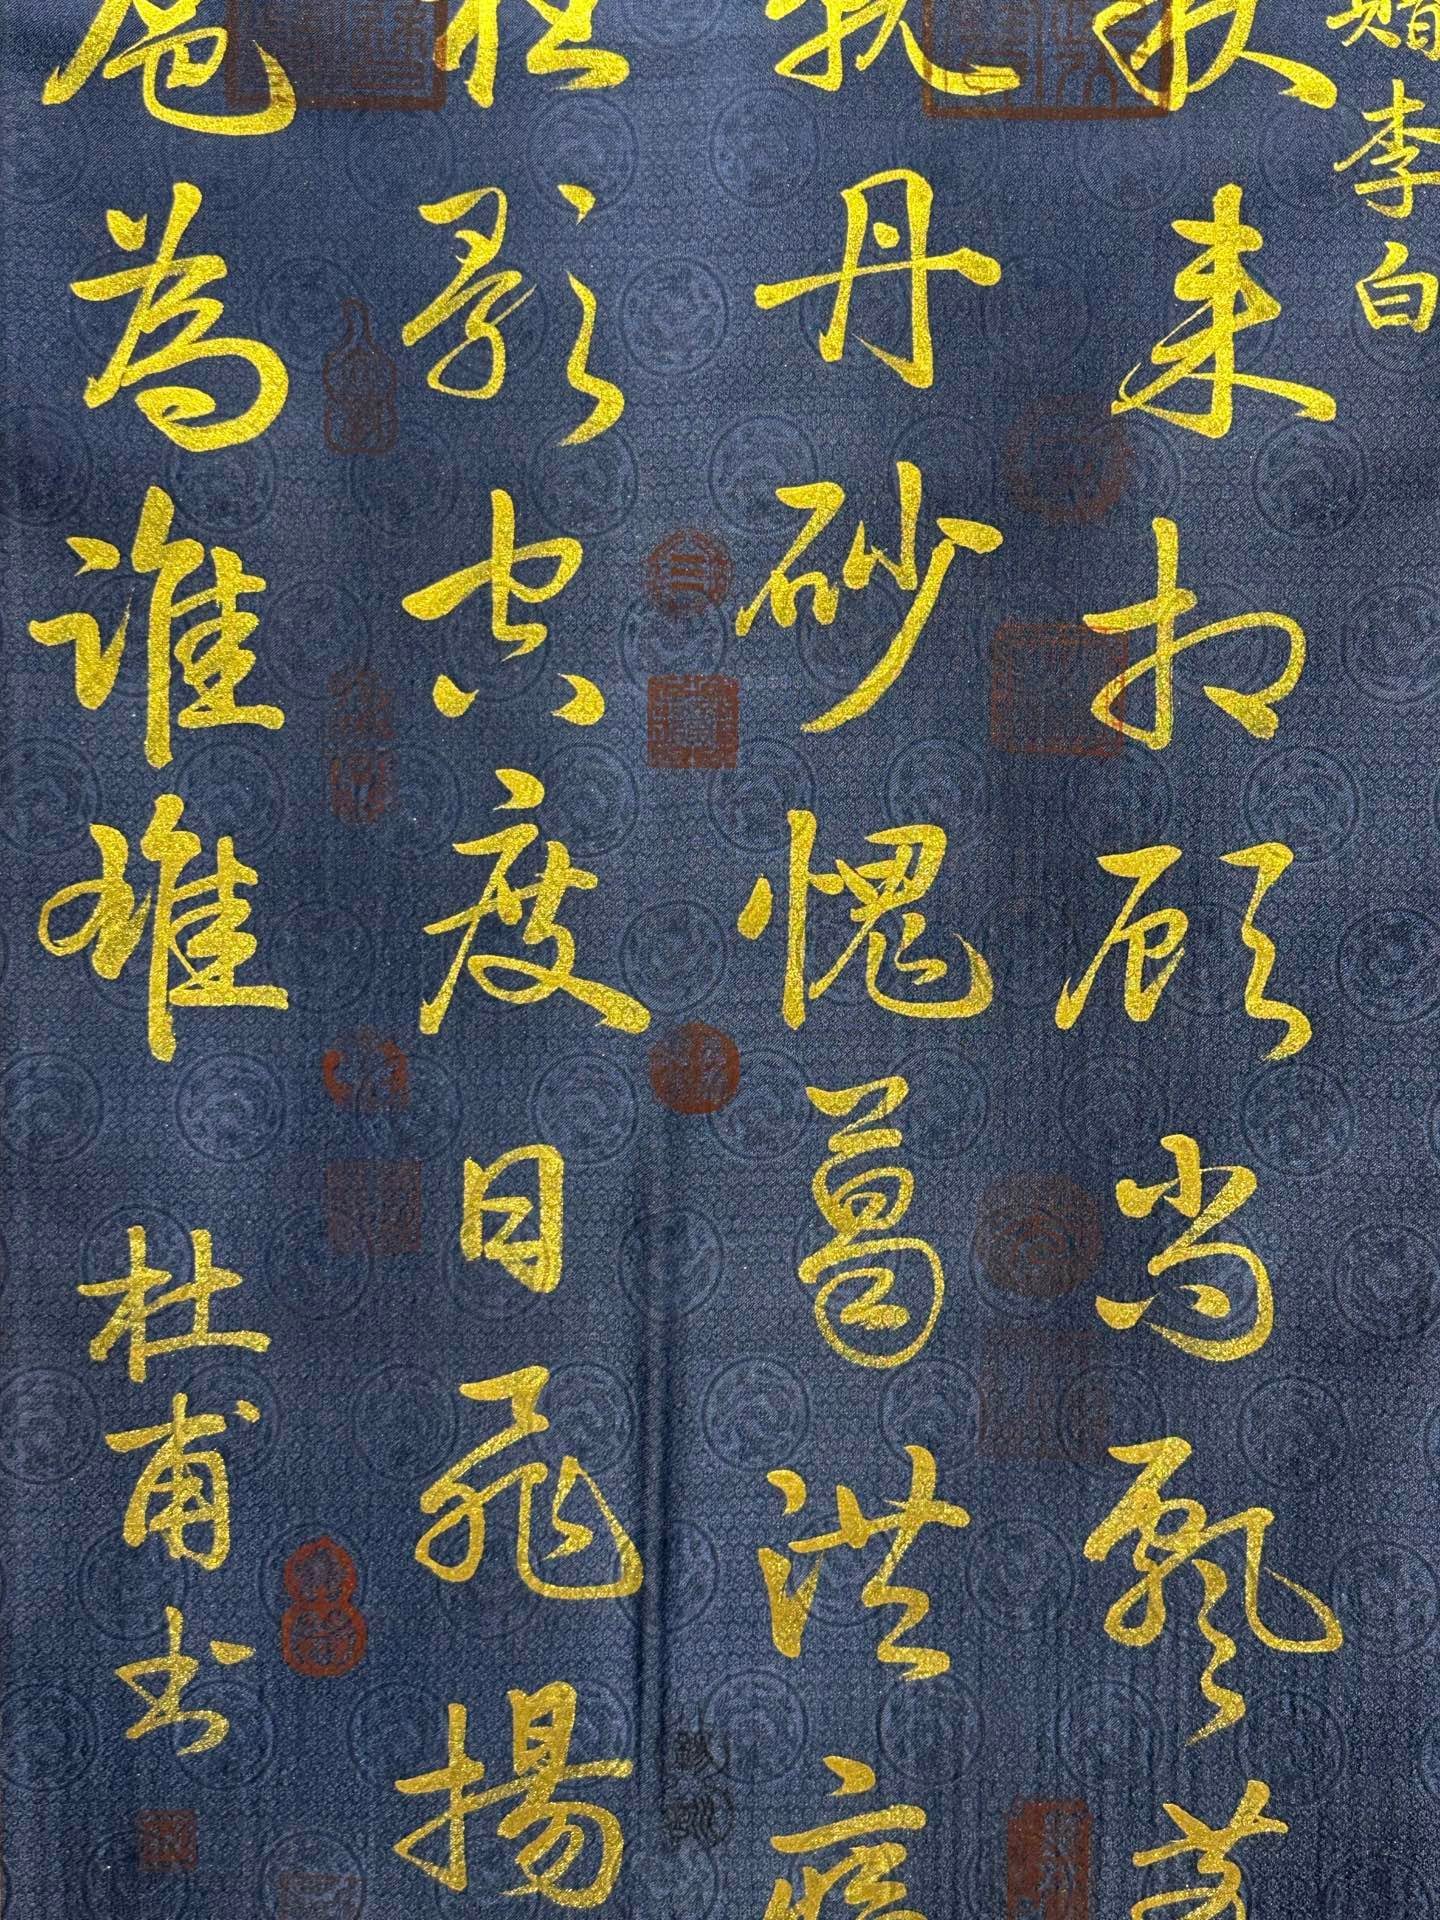 贈李白
秋来相顧尚飄蓬
就丹砂愧葛洪痛
狂歌空度日飛揚
扈為誰雄 杜甫书